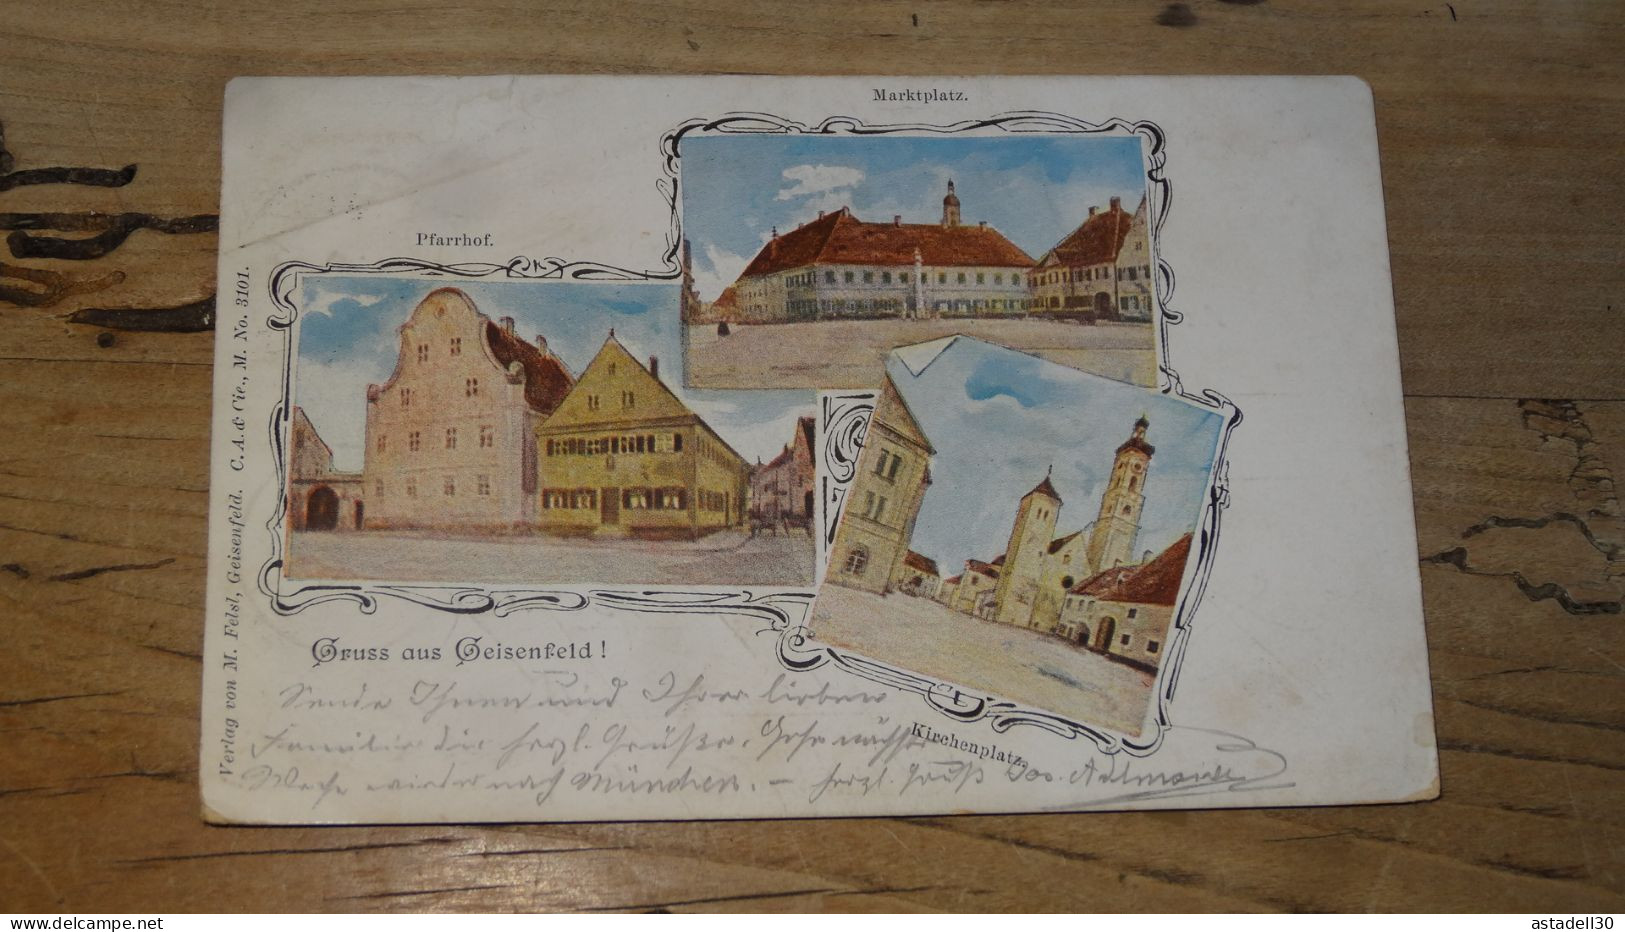 Marktplatz.
Pfarrhof.
Verlag von M. Felsl, Geisenfeld. C. A. & Cie., M. No. 3101.
Gruss aus Geisenfeld!
Kirchenplatz.
Sende Ihnen und Ihrer lieben
Familie die herzl. Grüße. Gehe nächste
Woche wieder nach München. – herzl. Gruß Jos.
© delcampe.net
astadell30